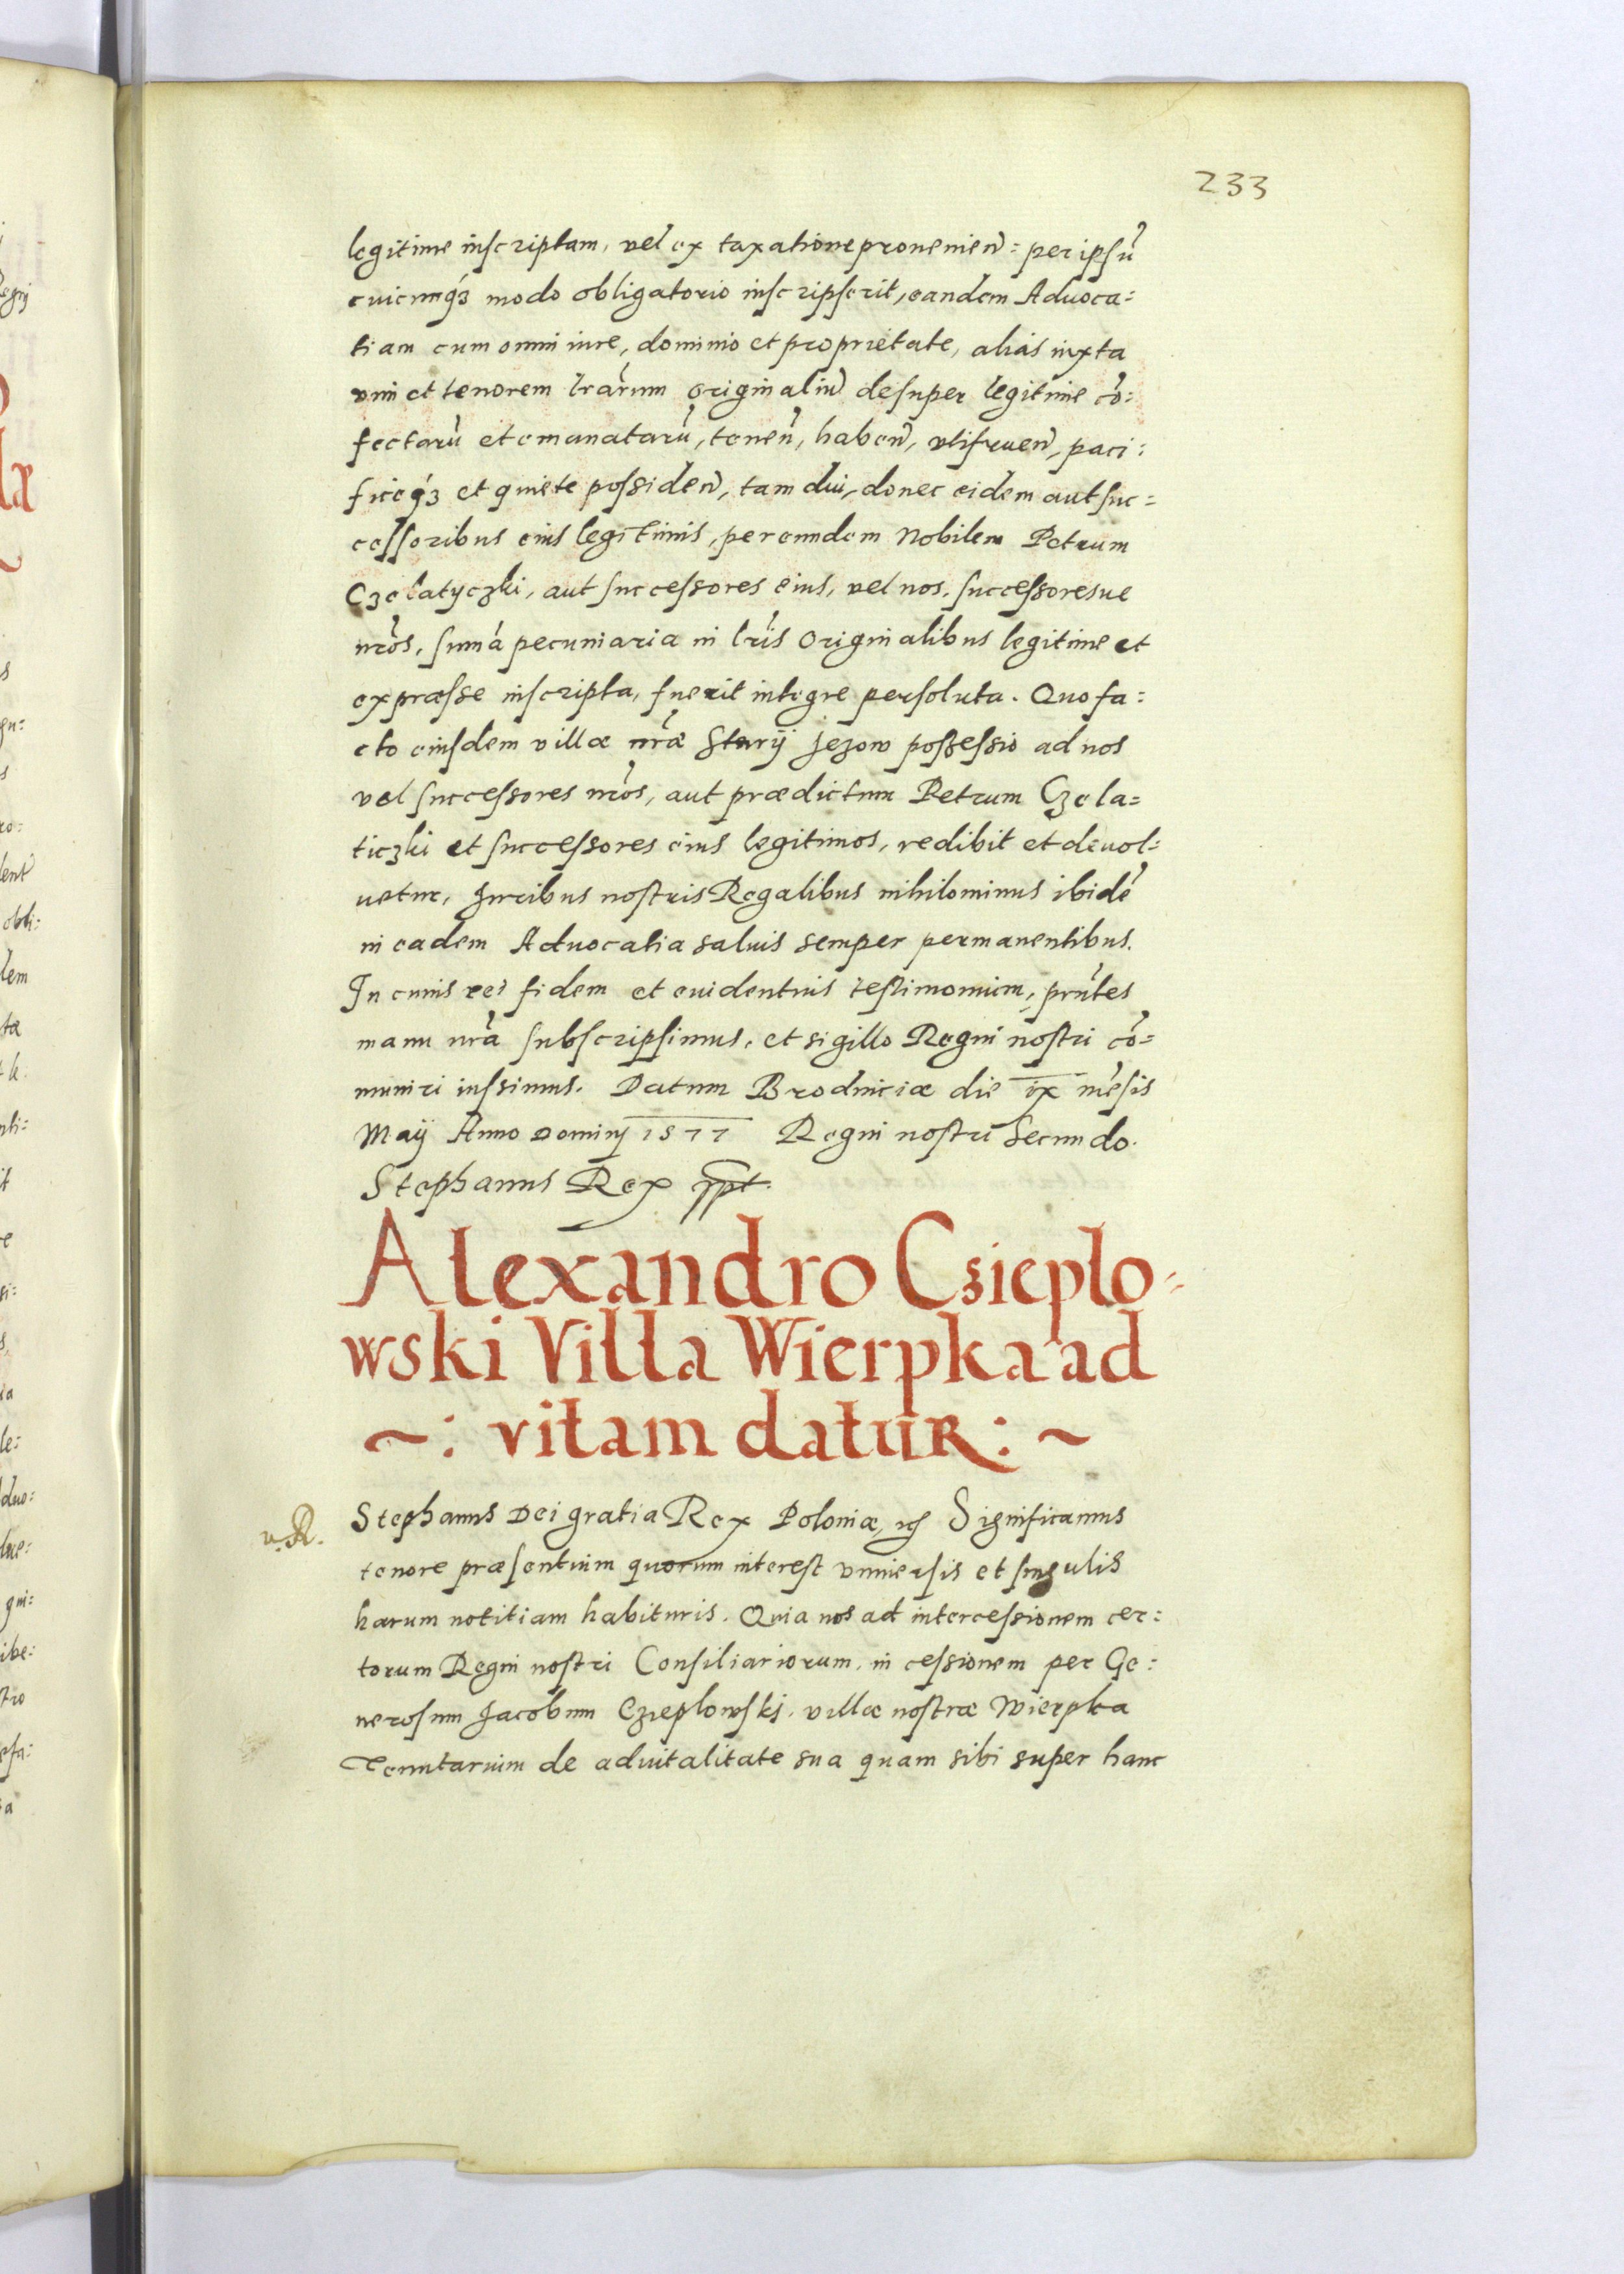 233
legitime inscriptam, vel ex taxatione provenień: per ipsū
cuicunqȝ modo obligatorio inscripserit, eandem Advoca:
tiam cum omni iure, dominio et proprietate, alias iuxta
vim et tenorem lrārum originaliū desuper legitime cō:
fectarū et emanatarū, teneń, habeń, utifrueń, paci:
ficeqȝ et quiete possideń, tam diu, donec eidem aut suc:
cessoribus eius legitimis, per eundem Nobilem Petrum
Czelatyczki, aut successores eius, vel nos, successoresue
nrōs, sum̄a pecuniaria in lrīs originalibus legitime et
expræsse inscripta, fuerit integre persoluta. Quo fa:
cto eiusdem villæ nrǣ Starij Jezow possessio ad nos
vel successores nrōs, aut prædictum Petrum Czela=
ticzki et successores eius legitimos, redibit et devol:
uetur, Juribus nostris Regalibus nihilominus ibidē
in eadem Advocatia salvis semper permanentibus.
In cuius rei fidem et evidentius testimonium, prn̄tes
manu nrā subscripsimus, et sigillo Regni nostri cō=
muniri iussimus. Datum Brodniciæ die ix mēsis
Maij Anno Dominj 1577 Regni nostri Secundo.
Stephanus Rex sspt.
Alexandro Csieplo-
wski Villa Wierpka ad
~: vitam datur: ~
v. A.
Stephanus Dei gratia Rex Poloniæ, etc Significamus
tenore præsentium quorum interest universis et singulis
harum notitiam habituris. Quia nos ad intercessionem cer:
torum Regni nostri Consiliariorum, in cessionem per Ge:
nerosum Jacobum Czieplowskj, villæ nostræ Wierpka
Tenutarium de advitalitate sua quam sibi super hanc